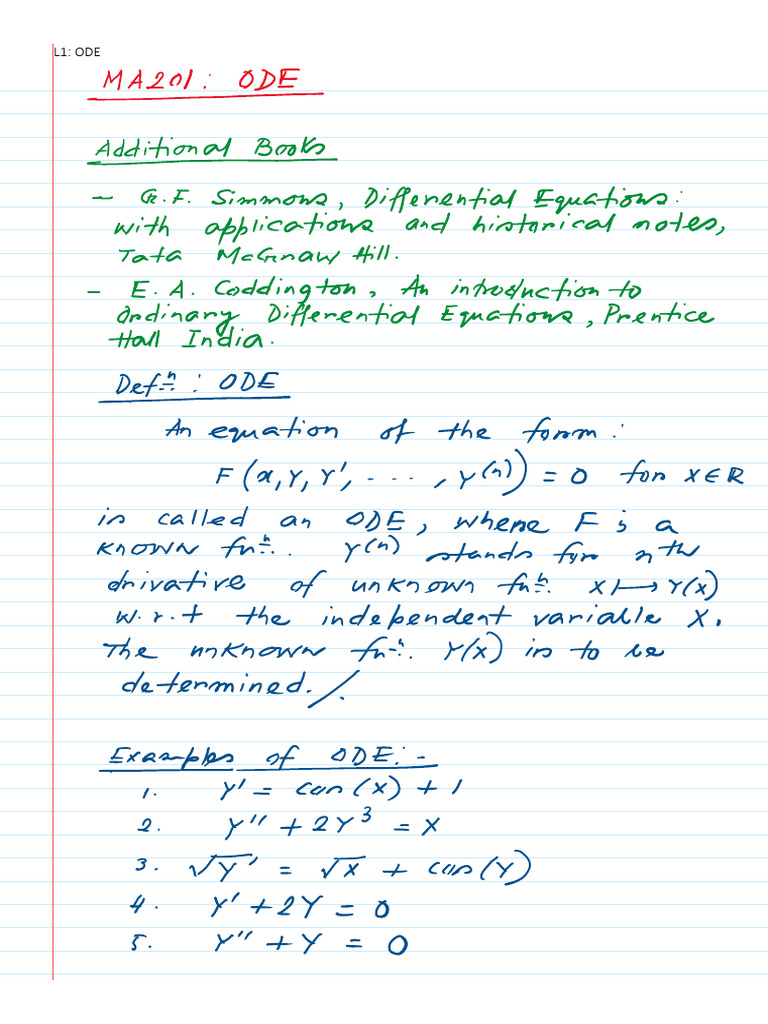 L1: ODE
MA201: ODE
Additional Books
- G.F. Simmons, Differential Equations:
with applications and historical notes,
Tata McGraw Hill.
- E. A. Coddington, An introduction to
Ordinary Differential Equations, Prentice
Hall India.
Defⁿ: ODE
An equation of the form:
F(x, y, y', ..., y⁽ⁿ⁾) = 0 for x ∈ R
is called an ODE, where F is a
known fnⁿ. y⁽ⁿ⁾ stands for nth
drivative of unknown fnⁿ. x ↦ y(x)
w.r.t the independent variable x.
The unknown fnⁿ. y(x) is to be
determined./.
Examples of ODE:-
1. y' = cos(x) + 1
2. y'' + 2y³ = x
3. √y' = √x + cos(y)
4. y' + 2y = 0
5. y'' + y = 0